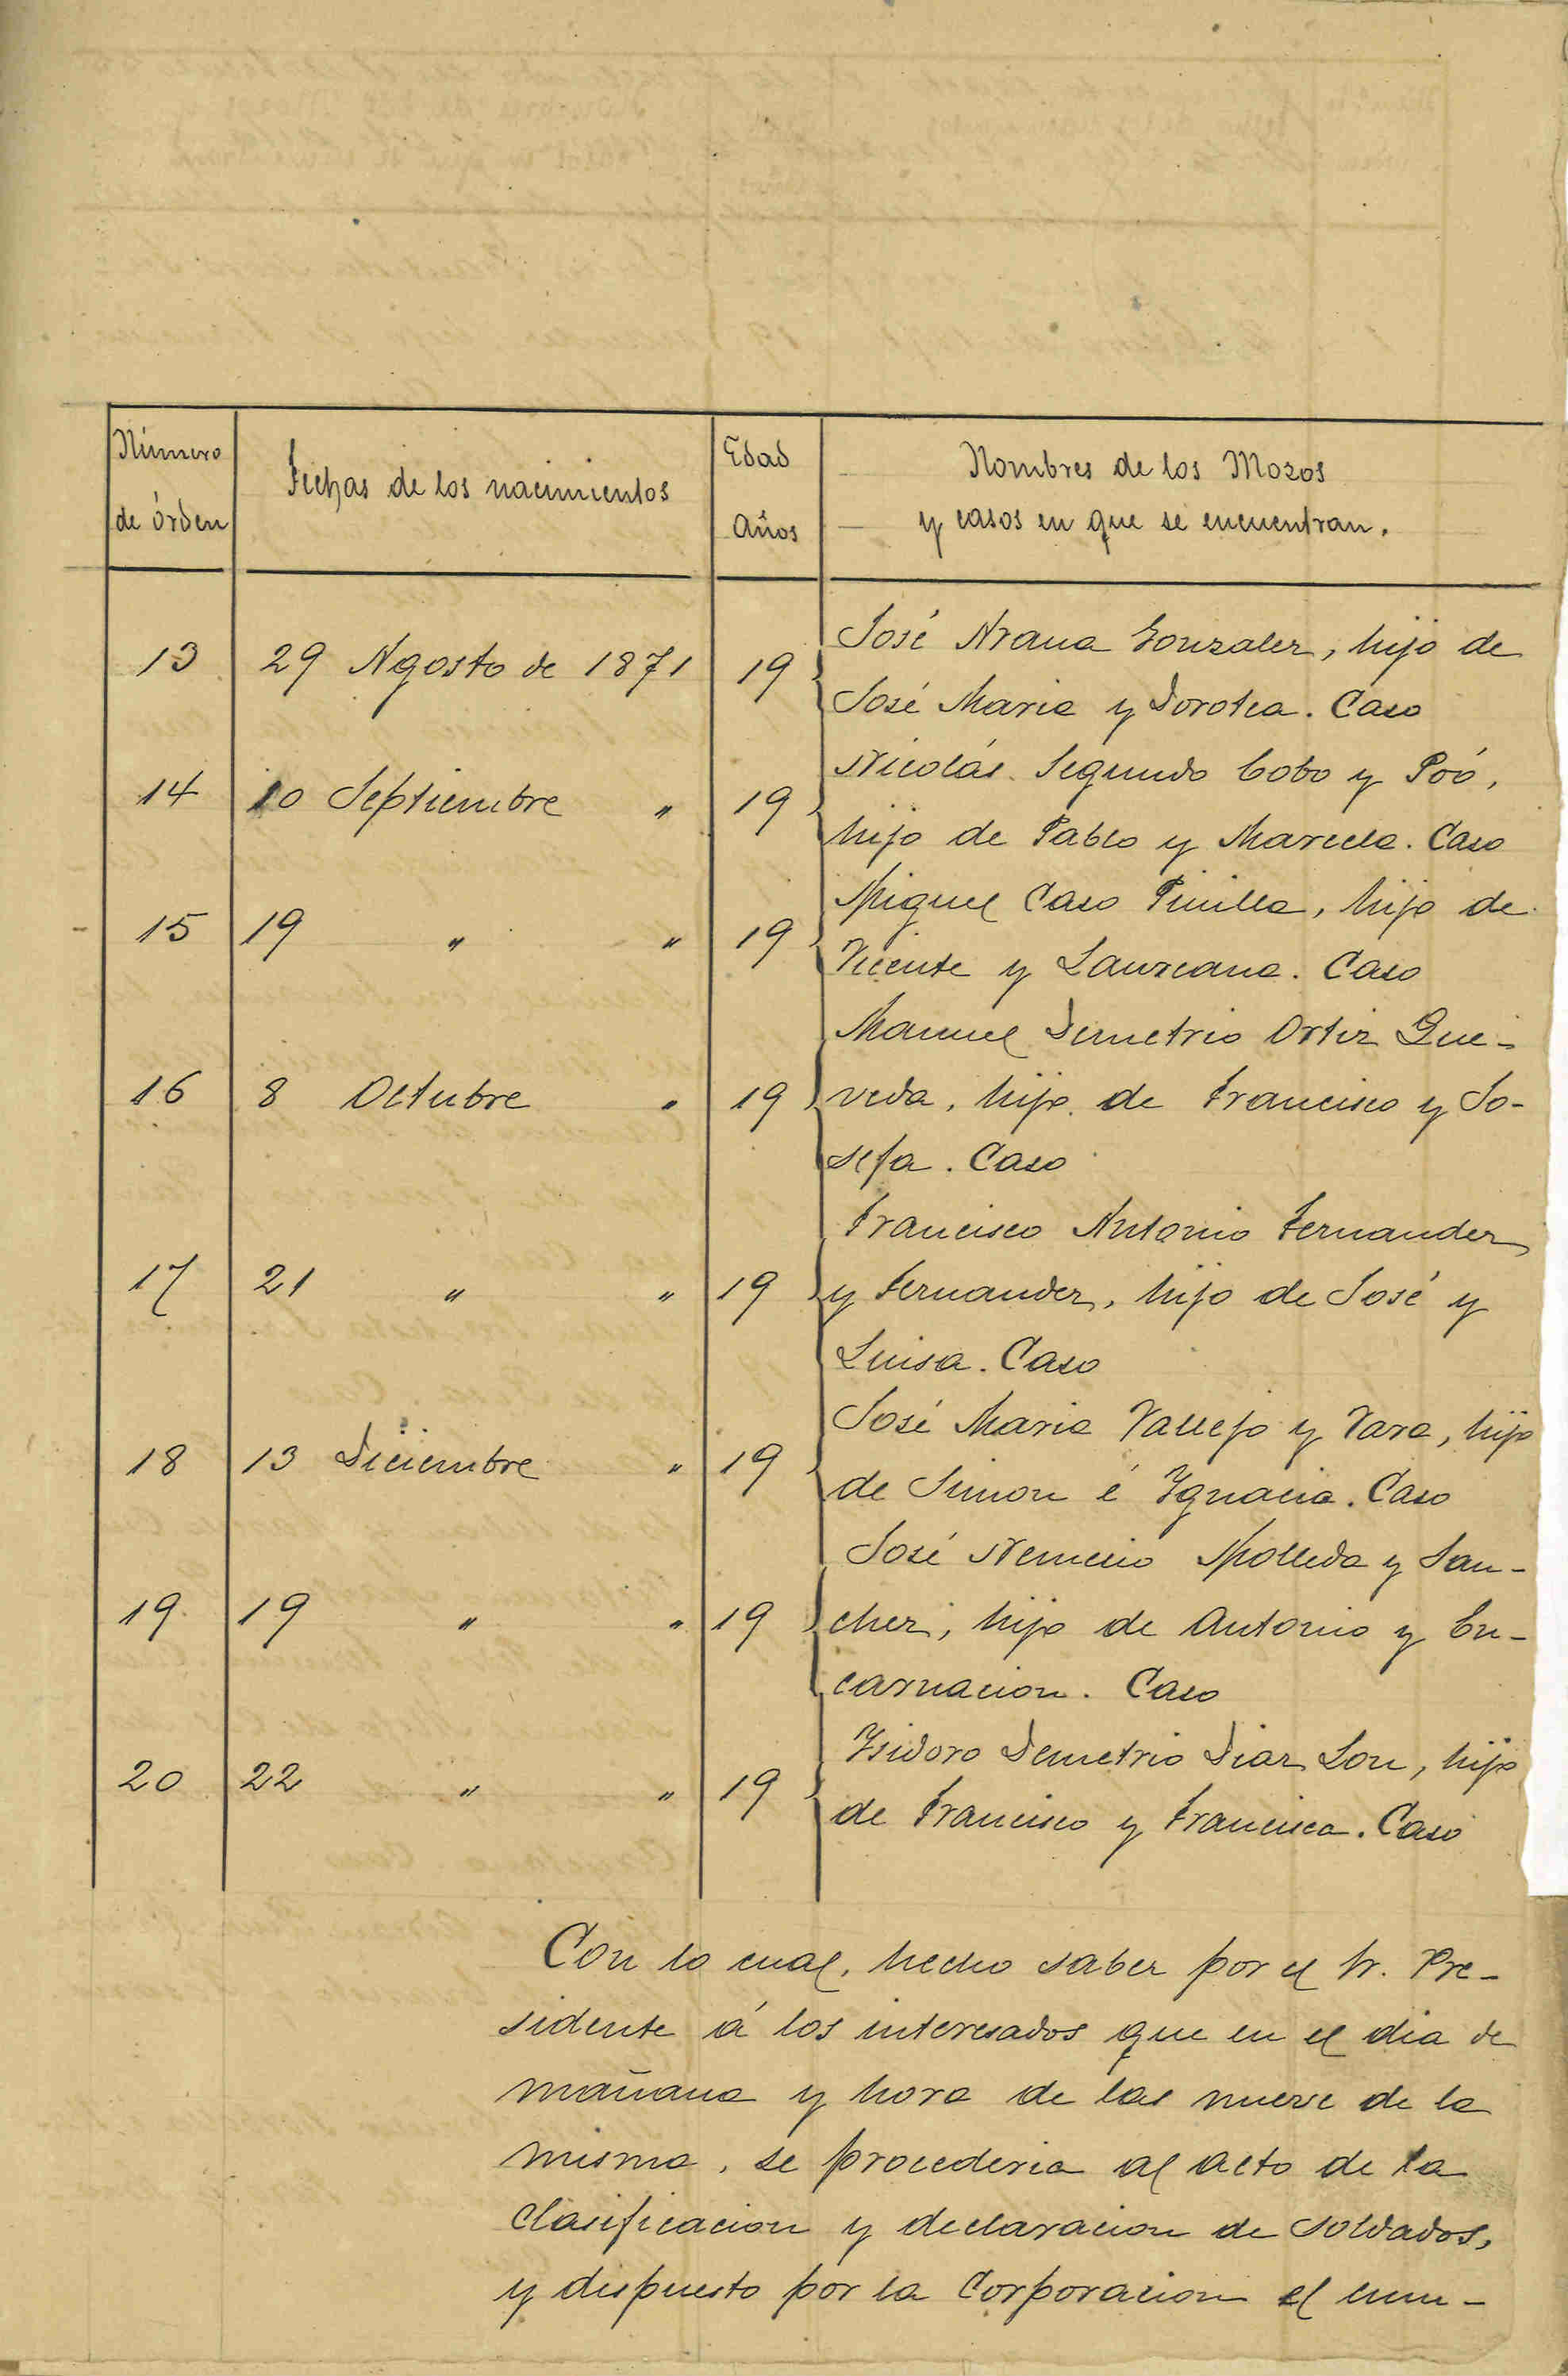 Número de órden | Fechas de los nacimientos | Edad Años | Nombres de los Mozos y casos en que se encuentran.
13 | 29 Agosto de 1871 | 19 | José Arana Gonzalez, hijo de
José Maria y Dorotea. Caso
14 | 10 Septiembre " | 19 | Nicolás Segundo Cobo y Póo,
hijo de Pablo y Marcela. Caso
15 | 19 " " | 19 | Miguel Caso Pinilla, hijo de
Vicente y Laureana. Caso
16 | 8 Octubre " | 19 | Manuel Demetrio Ortiz Que-
veda, hijo de Francisco y Jo-
sefa. Caso
17 | 21 " " | 19 | Francisco Antonio Fernandez
y Fernandez, hijo de José y
Luisa. Caso
18 | 13 Diciembre " | 19 | José Maria Vallejo y Vara, hijo
de Simon é Ygnacia. Caso
19 | 19 " " | 19 | José Nemesio Molleda y San-
chez, hijo de Antonio y En-
carnacion. Caso
20 | 22 " " | 19 | Ysidoro Demetrio Diaz Lon, hijo
de Francisco y Francisca. Caso
Con lo cual, hecho saber por el Sr. Pre-
sidente á los interesados que en el dia de
mañana y hora de las nueve de la
misma, se procederia al acto de la
clasificacion y declaracion de soldados,
y dispuesto por la Corporacion el cum-